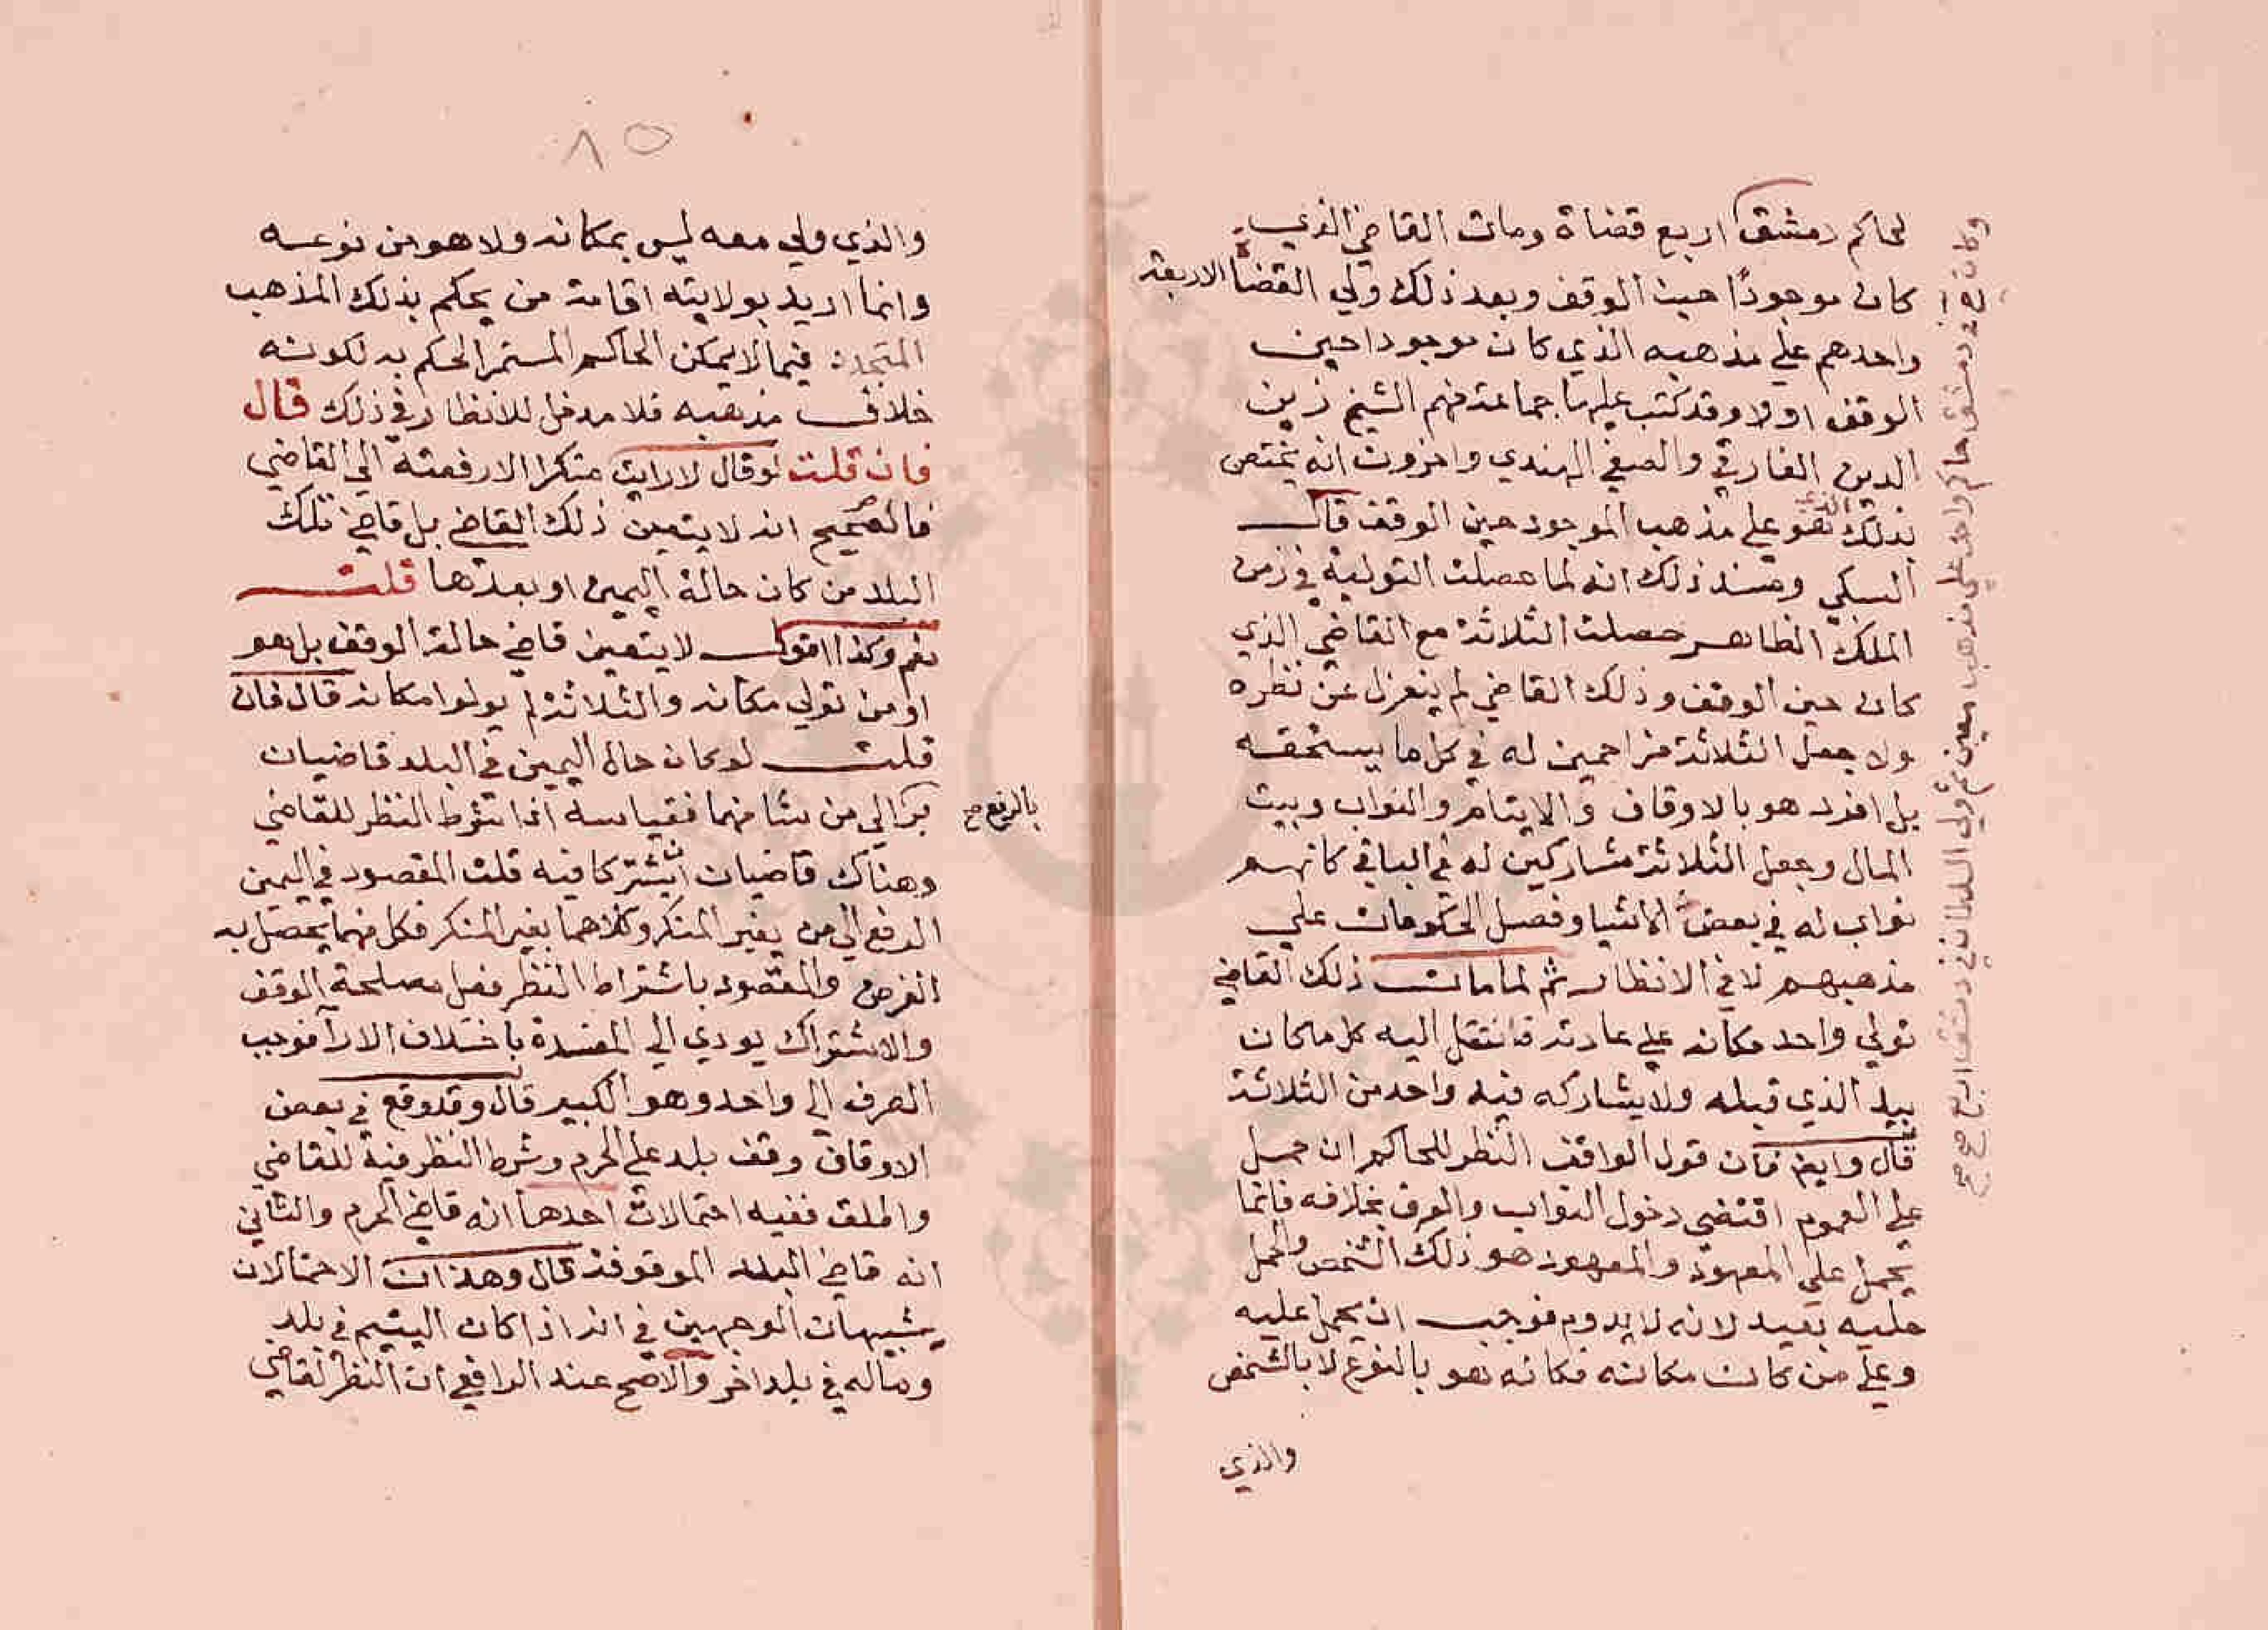 لحاكم دمشق اربع قضاة ومات القاضي الذي
كان موجودًا حين الوقف وبعد ذلك ولي القضاة الاربعة
واحدهم على مذهبه الذي كان موجودا حين
الوقف اولا وقد كتب عليها جماعة منهم الشيخ زين
الدين الفارقي والصفي الهندي واخرون انه يختص
بذلك الذي هو على مذهب الموجود حين الوقف قال
السبكي ومستند ذلك انه لما حصلت التولية في زمن
الملك الظاهر حصلت الثلاثة مع القاضي الذي
كان حين الوقف وذلك القاضي لم ينعزل عن نظره
ولا جعل الثلاثة مزاحمين له في كل ما يستحقه
بل افرد هو بالاوقاف والايتام والنواب وبيت
المال وجعل الثلاثة مشاركين له في الباقي كانهم
نواب له في بعض الاشيا وفصل الحكومات على
مذهبهم لا في الانظار ثم لما مات ذلك القاضي
تولى واحد مكانه على عادته فانتقل اليه كل ما كان
بيد الذي قبله ولا يشاركه فيه واحد من الثلاثة
قال وايضا فان قول الواقف النظر للحاكم ان حمل
على العموم اقتضى دخول النواب والعرف بخلافه فانما
يحمل على المعهود والمعهود هو ذلك الشخص والحمل
عليه بعيد لانه لا يدوم فوجب ان يحمل عليه
وعلى من كان مكانه فكانه هو بالنوع لا بالشخص
والذي
وكان في دمشق حاكم واحد على مذهب معين ثم ولى السلطان في دمشق اربع صح صح
٨٥
والذي ولي معه ليس بمكانه ولا هو من نوعه
وانما اريد بولايته اقامة من يحكم بذلك المذهب
المتجدد فيما لا يمكن الحاكم المستمر الحكم به لكونه
خلاف مذهبه فلا مدخل للانظار في ذلك قال
فان قلت لو قال لا رايت منكرا الا رفعته الى القاضي
فالصحيح انه لا يتعين ذلك القاضي بل قاضي تلك
البلد من كان حالة اليمين او بعدها قلت
نعم وكذا اقول لا يتعين قاضي حالة الوقف بل هو
او من تولي مكانه والثلاثة لم يولوا مكانه قال فان
قلت لو كان حال اليمين في البلد قاضيان
بر الى من شا منهما فقياسه اذا شرط النظر للقاضي
بالرفع صح
وهناك قاضيان ان يشتركا فيه قلت المقصود في اليمين
الرفع الى من يغير المنكر وكلاهما يغير المنكر فكل منهما يحصل به
الغرض والمقصود باشتراط النظر فعل مصلحة الوقف
والاشتراك يودي الى المفسدة باختلاف الارآ فوجب
الصرف الى واحد وهو الكبير قال وقد وقع في بعض
الاوقاف وقف بلد على الحرم وشرط النظر فيه للقاضي
واطلق ففيه احتمالات احدها انه قاضي الحرم والثاني
انه قاضي البلد الموقوفة قال وهذان الاحتمالان
يشبهان الوجهين في انه اذا كان اليتيم في بلد
وماله في بلد اخر والاصح عند الرافعي ان النظر لقاضي